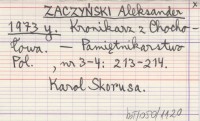 ZACZYŃSKI Aleksander
1973 y. Kronikarz z Chocho-
łowa. — Pamiętnikarstwo
Pol., nr 3-4: 213-214.
Karol Skorusa.